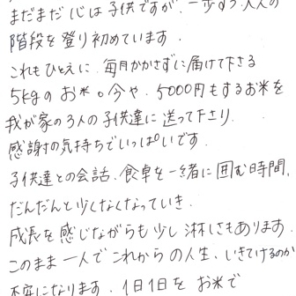 まだまだ心は子供ですが、一歩ずつ大人の
階段を登り初めています。
これもひとえに、毎月かかさずに届けて下さる
5kgのお米。今や、5000円もするお米を
我が家の3人の子供達に送って下さり、
感謝の気持ちでいっぱいです。
子供達との会話、食卓を一緒に囲む時間、
だんだんと少しなくなっていき、
成長を感じながらも少し淋しさもあります。
このまま一人でこれからの人生、いきてけるのか
不安になります。1日1日を お米で